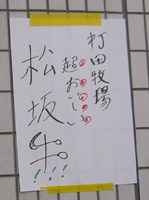 打田牧場
超おいしい
松坂牛!!!